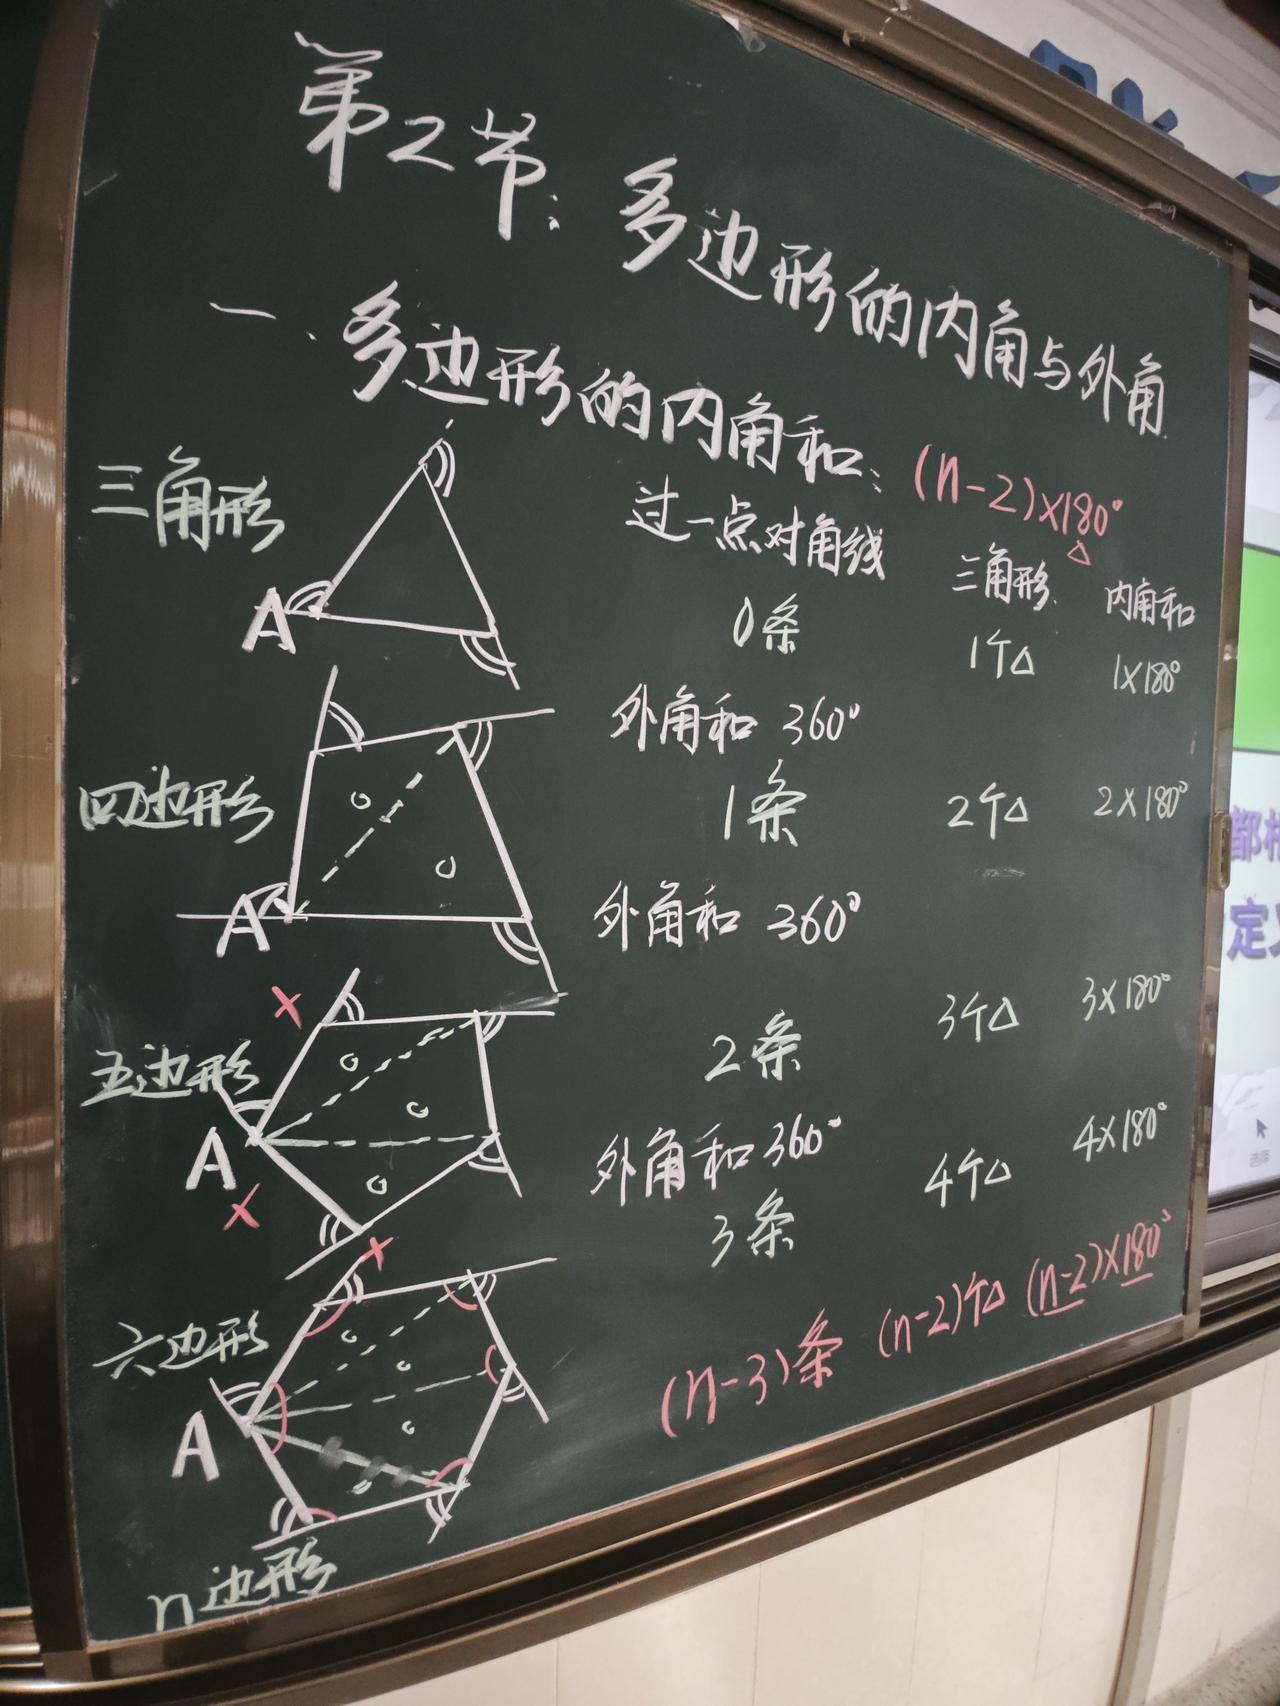 第2节：多边形的内角与外角.
一、多边形的内角和：(n-2)×180°
△
过一点对角线 三角形. 内角和
三角形 A 0条 1个△ 1×180°
外角和 360°
四边形 A 1条 2个△ 2×180°
外角和 360°
五边形 A 2条 3个△ 3×180°
外角和 360°
六边形 A 3条 4个△ 4×180°
n边形 (n-3)条 (n-2)个△ (n-2)×180°
都相
定义
选择